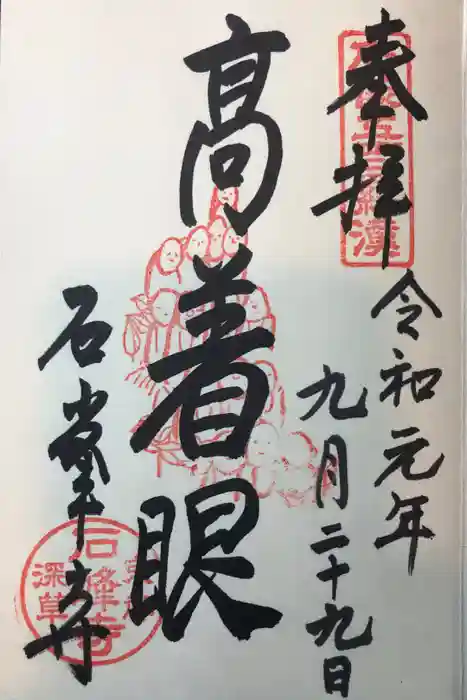 奉拝
令和元年
九月二十九日
高着眼
石峯寺
五百羅漢
石峰寺
深草